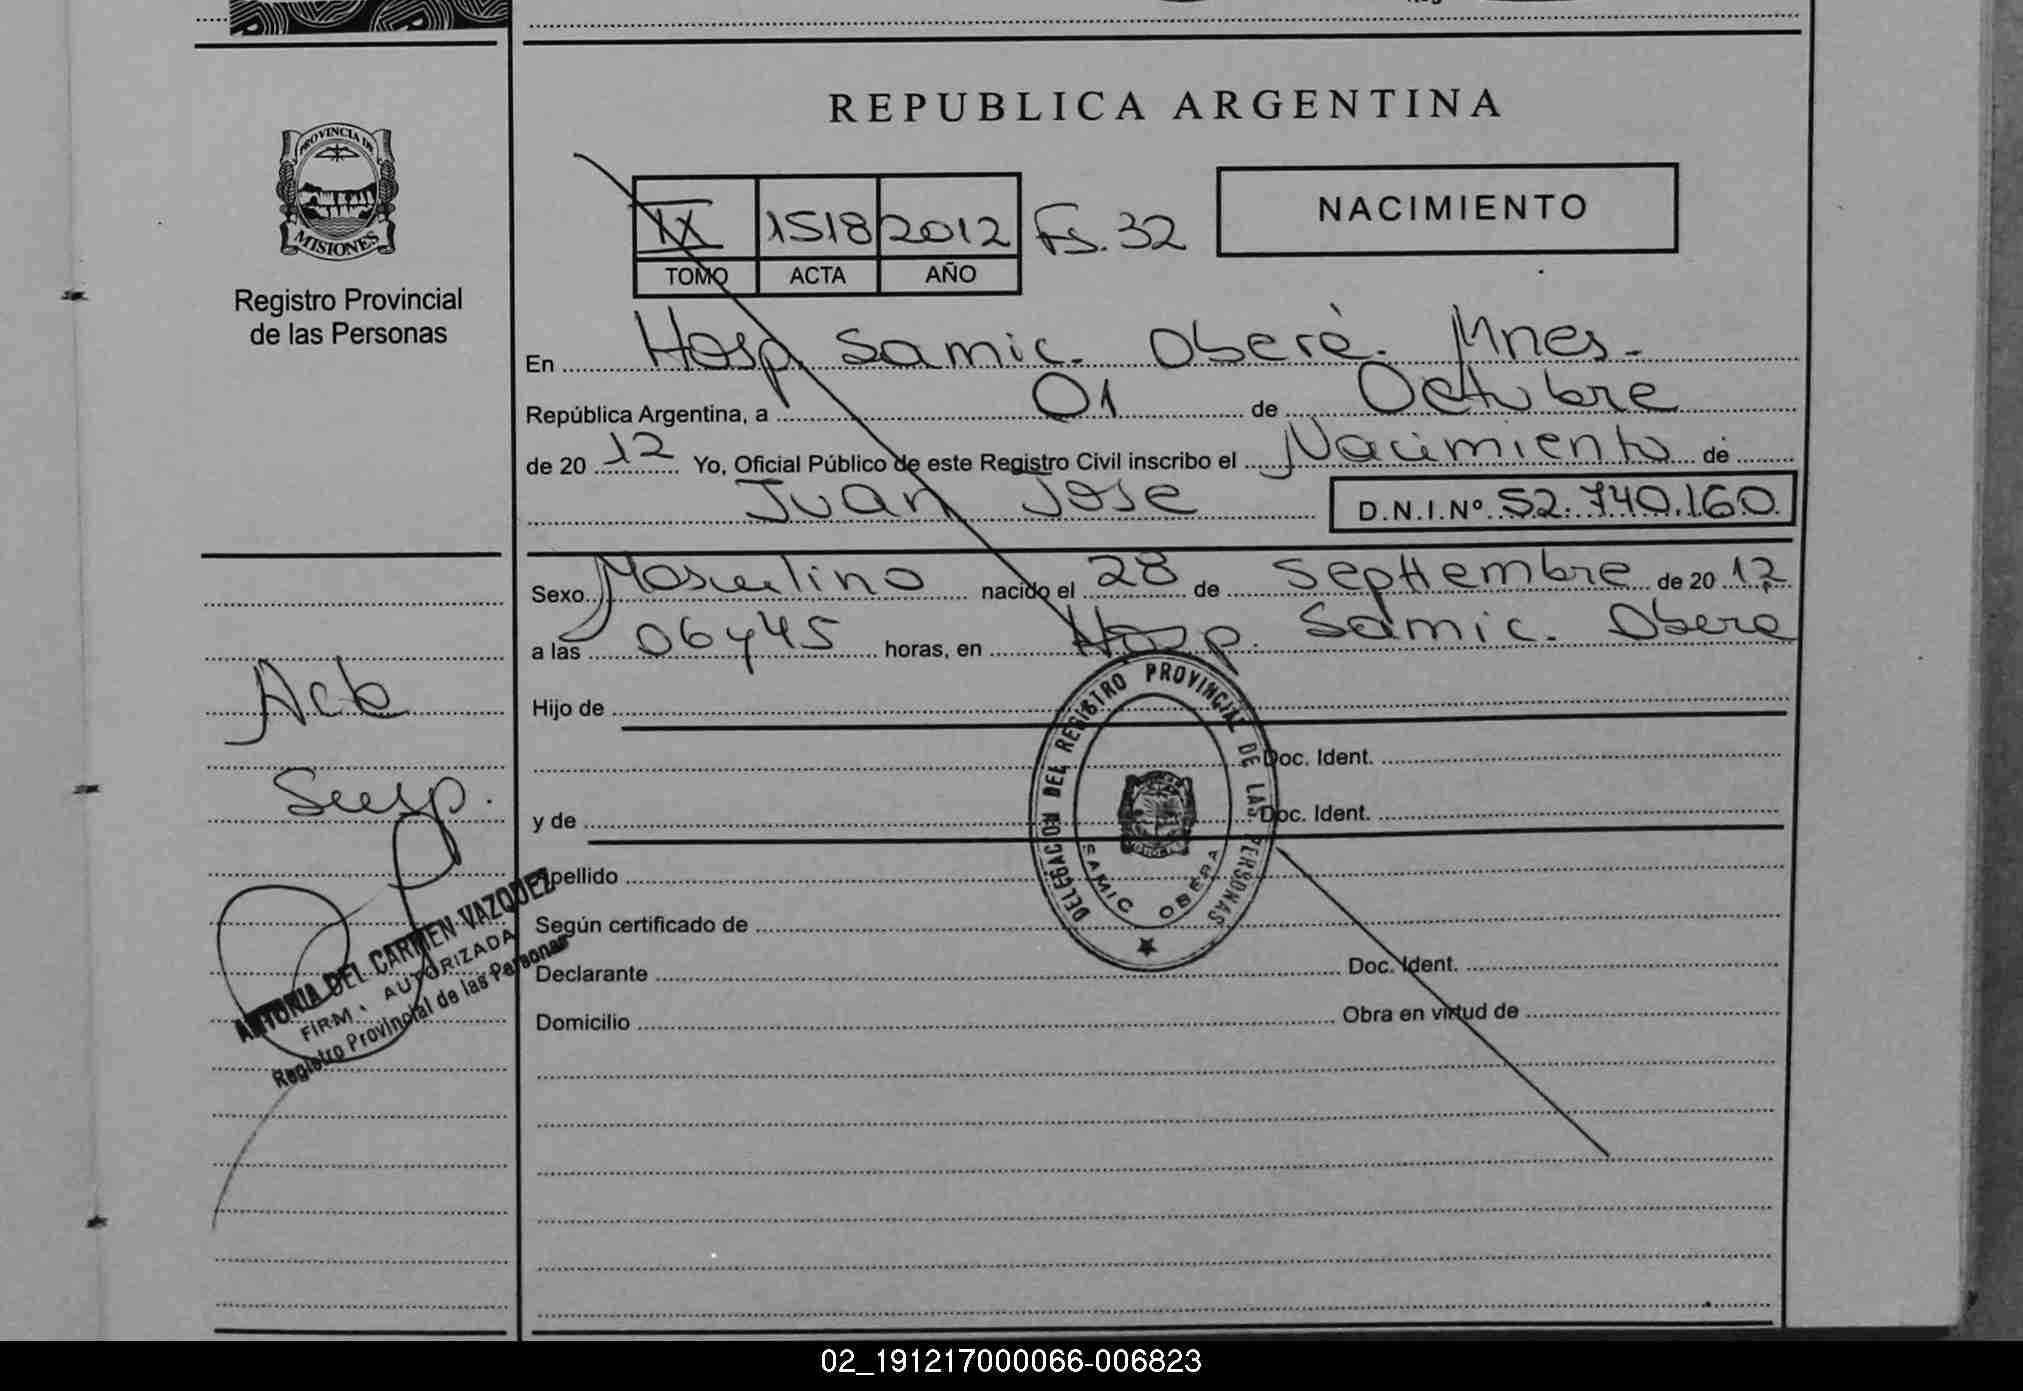 REPUBLICA ARGENTINA
PROVINCIA DE
MISIONES
Registro Provincial
de las Personas
IX 1518 2012 Fs. 32
TOMO ACTA AÑO
NACIMIENTO
En Hosp. Samic. Oberà. Mnes.
República Argentina, a 01 de Octubre
de 20 12 Yo, Oficial Público de este Registro Civil inscribo el Nacimiento de
Juan Jose D.N.I.Nº 52.740.160
Sexo Masculino nacido el 28 de Septiembre de 20 12
a las 06y45 horas, en Hosp. Samic. Obera
Hijo de
Doc. Ident.
y de Doc. Ident.
Apellido
Según certificado de
Declarante Doc. Ident.
Domicilio Obra en virtud de
DELEGACION DEL REGISTRO PROVINCIAL DE LAS PERSONAS
SAMIC OBERA
Acta
Susp.
ANTONIA DEL CARMEN VAZQUEZ
FIRMA AUTORIZADA
Registro Provincial de las Personas
02_191217000066-006823